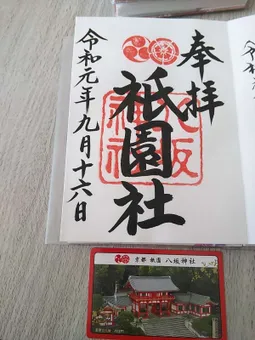 奉拝
祇園社
八坂
神社
令和元年九月十六日
京都 祇園 八坂神社